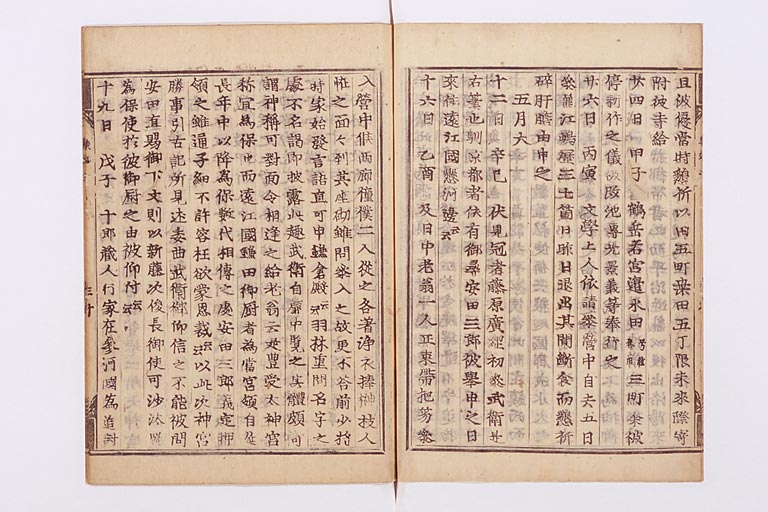 且彼侵當時懇祈以田五町桒田五丁限未來際寄
附彼寺給
廿四日 甲子 鶴岳若宮邊水田 三町余被
停耕作之儀被改池專光景義等奉行之
廿六日 丙寅 文學上人依請參營中自去五日
參籠江嶋歷三七箇日昨日退出其間斷食而懇祈
碎肝膽由申之
五月大
十二日 辛巳 伏見冠者藤原廣綱初參武衛是
右筆也馴京都者依有御尋安田三郎被舉申之日
來住遠江國懸河邊云云
十六日 乙酉 及日中老翁一人正束帶把笏參
入營中候西廊僮僕二人從之各著淨衣捧榊枝人
怪之面々到其座砌雖問參入之故更不答前少將
時家始發言語直可申鎌倉殿云云羽林重問名字之
處不名謁即披露此趣武衛自簾中覽之其體頗可
謂神稱可對面令相逢之給老翁云是豐受太神宮
祢宜為保也而遠江國鎌田御厨者為當宮領自延
長年中以降為保數代相傳之處安田三郎義定押
領之雖通子細不許容枉欲蒙恩裁云云以此次神宮
勝事引古記所見述委曲武衛御仰信之不能被問
安田直賜御下文則以新藤次俊長御使可沙汰置
為保使於彼御厨之由被仰付云云
十九日 戊子 十郎藏人行家在參河國為追討